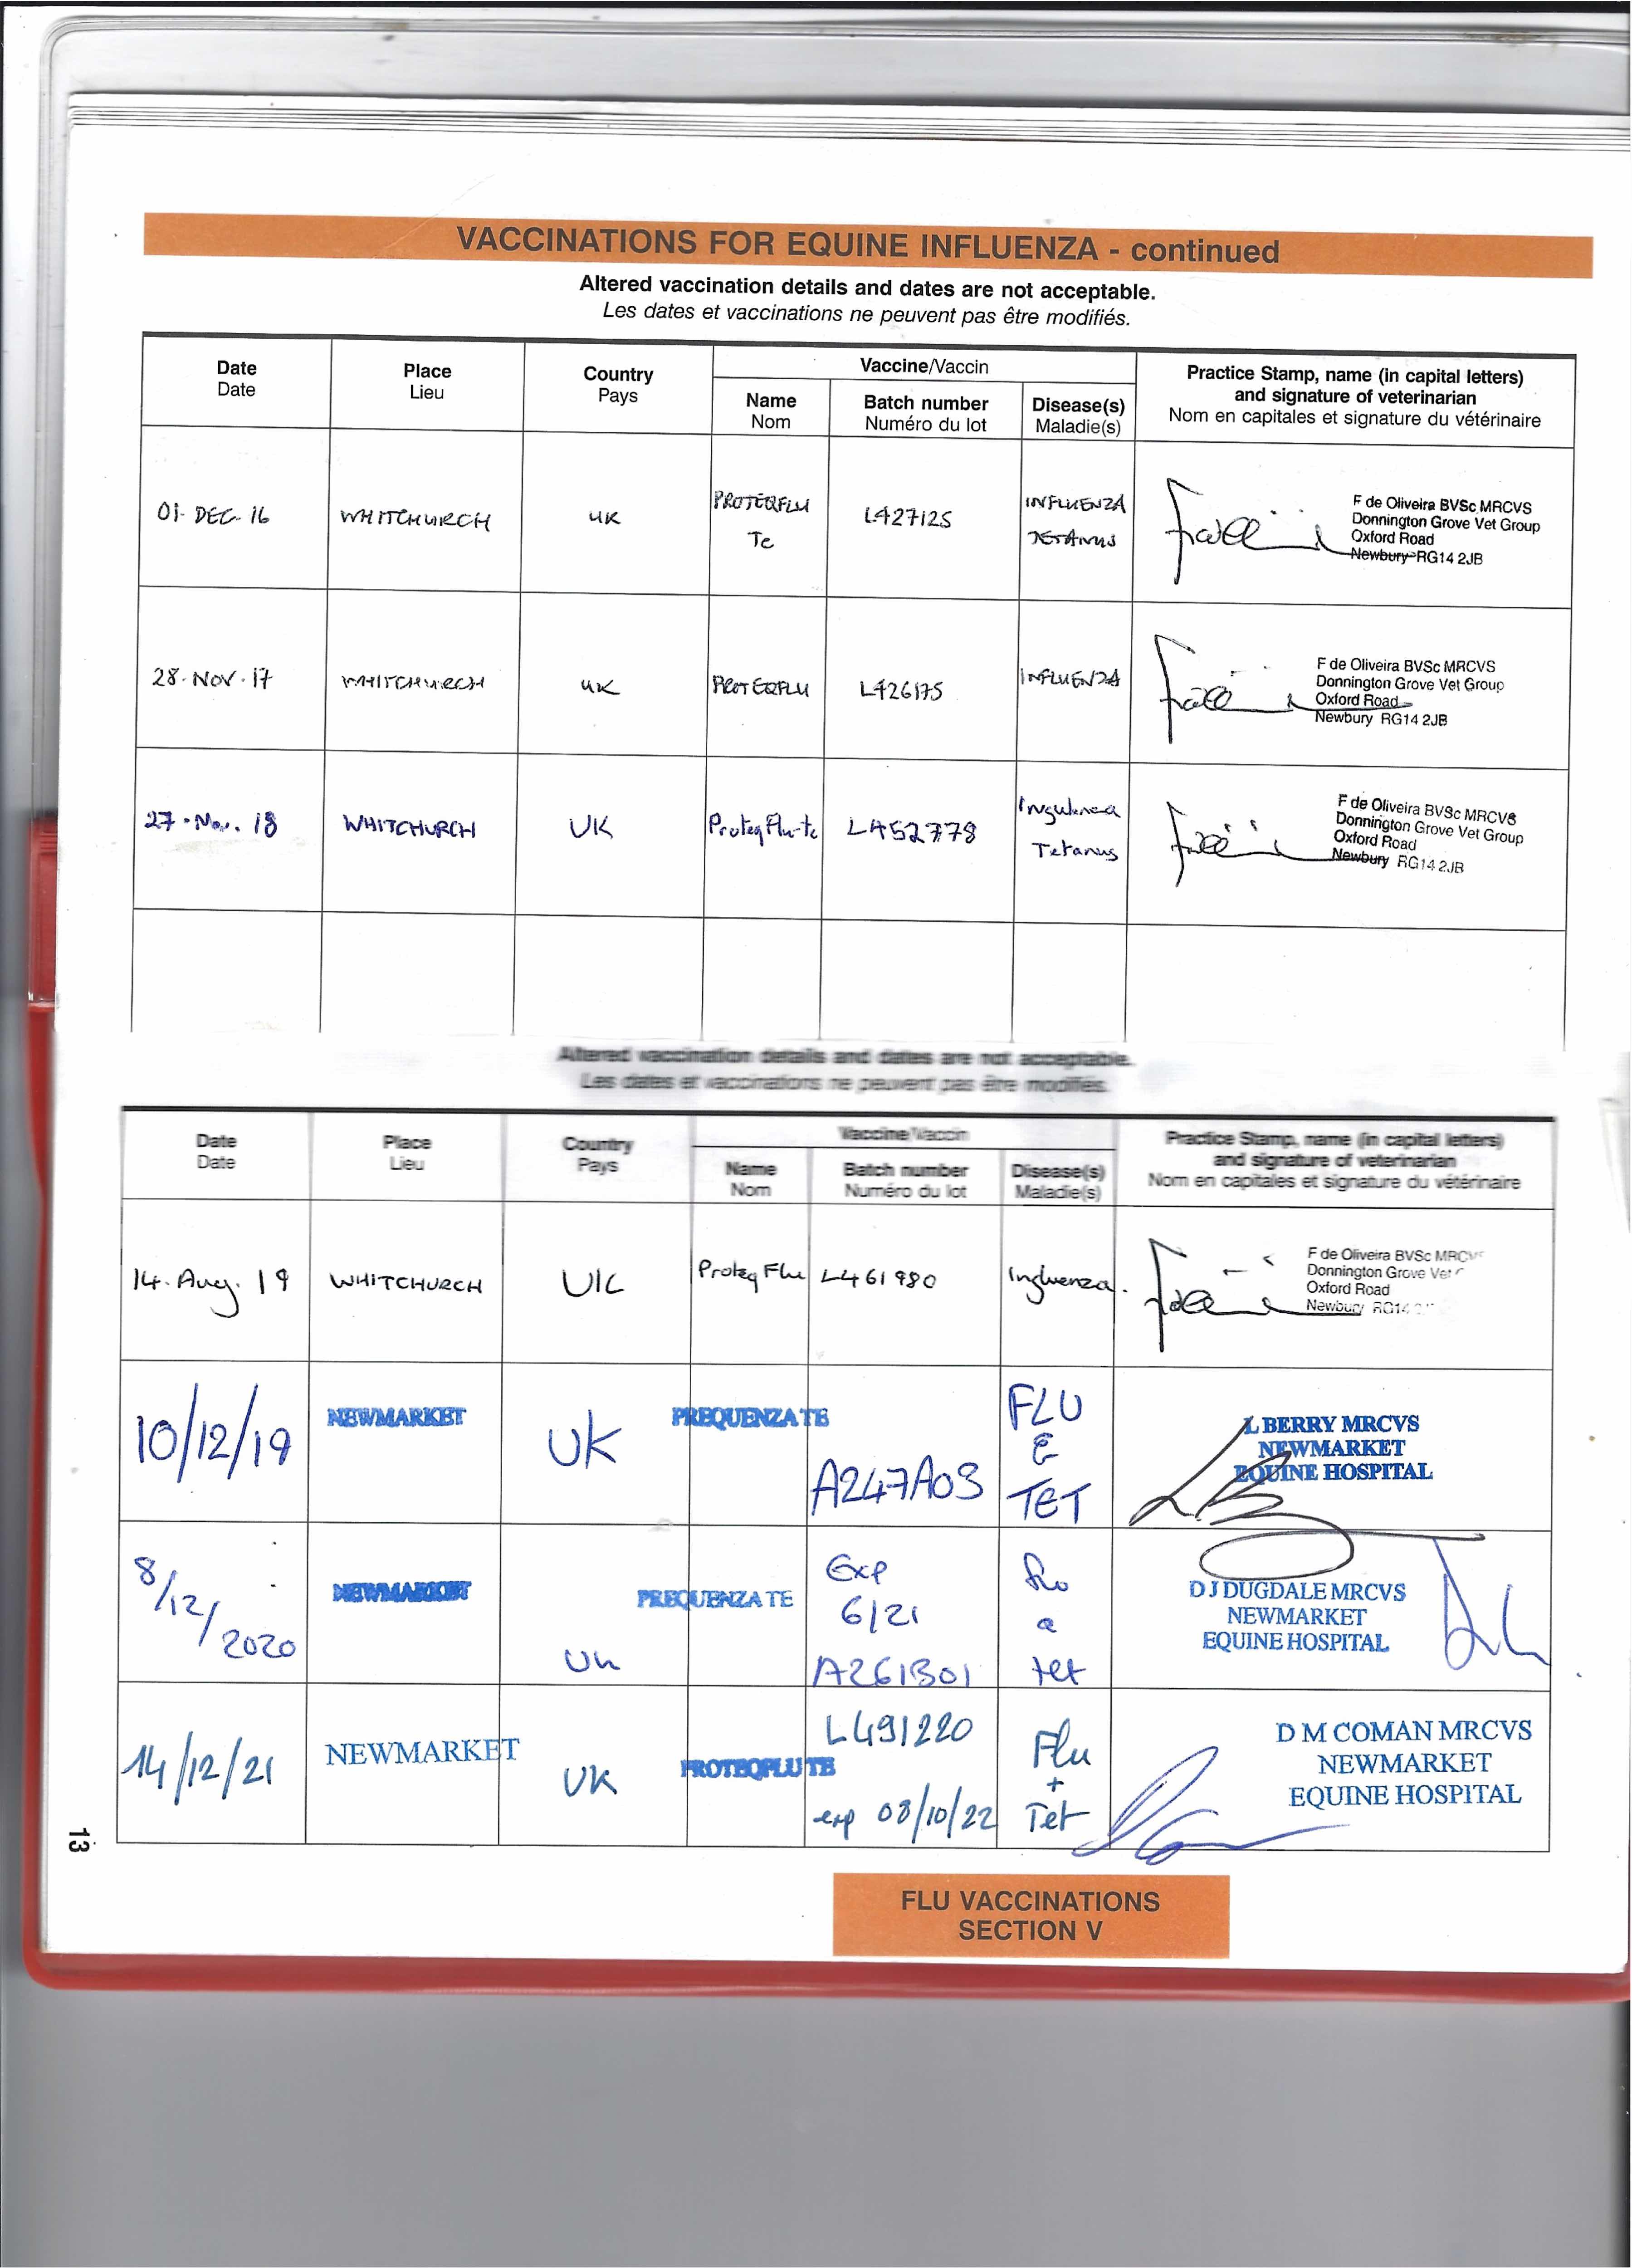 VACCINATIONS FOR EQUINE INFLUENZA - continued
Altered vaccination details and dates are not acceptable.
Les dates et vaccinations ne peuvent pas être modifiés.
Date
Date
Place
Lieu
Country
Pays
Vaccine/Vaccin
Name
Nom
Batch number
Numéro du lot
Disease(s)
Maladie(s)
Practice Stamp, name (in capital letters)
and signature of veterinarian
Nom en capitales et signature du vétérinaire
01. DEC. 16
WHITCHURCH
UK
PROTEQFLU
Te
L427125
INFLUENZA
TETANUS
F de Oliveira BVSc MRCVS
Donnington Grove Vet Group
Oxford Road
Newbury RG14 2JB
28. NOV. 17
WHITCHURCH
UK
PROTEQFLU
L426175
INFLUENZA
F de Oliveira BVSc MRCVS
Donnington Grove Vet Group
Oxford Road
Newbury RG14 2JB
27. Nov. 18
WHITCHURCH
UK
ProteqFlu-te
L452778
Influenza
Tetanus
F de Oliveira BVSc MRCVS
Donnington Grove Vet Group
Oxford Road
Newbury RG14 2JB
Altered vaccination details and dates are not acceptable.
Les dates et vaccinations ne peuvent pas être modifiés.
Date
Date
Place
Lieu
Country
Pays
Vaccine/Vaccin
Name
Nom
Batch number
Numéro du lot
Disease(s)
Maladie(s)
Practice Stamp, name (in capital letters)
and signature of veterinarian
Nom en capitales et signature du vétérinaire
14. Aug. 19
WHITCHURCH
UK
Proteq Flu
L461980
Influenza.
F de Oliveira BVSc MRCVS
Donnington Grove Vet
Oxford Road
Newbury RG14
10/12/19
NEWMARKET
UK
PREQUENZA TE
A247A03
FLU
&
TET
L BERRY MRCVS
NEWMARKET
EQUINE HOSPITAL
8/12/2020
NEWMARKET
UK
PREQUENZA TE
Exp
6/21
A261B01
flu
&
tet
D J DUGDALE MRCVS
NEWMARKET
EQUINE HOSPITAL
14/12/21
NEWMARKET
UK
PROTEQFLU TE
L491220
exp 08/10/22
Flu
+
Tet
D M COMAN MRCVS
NEWMARKET
EQUINE HOSPITAL
13
FLU VACCINATIONS
SECTION V